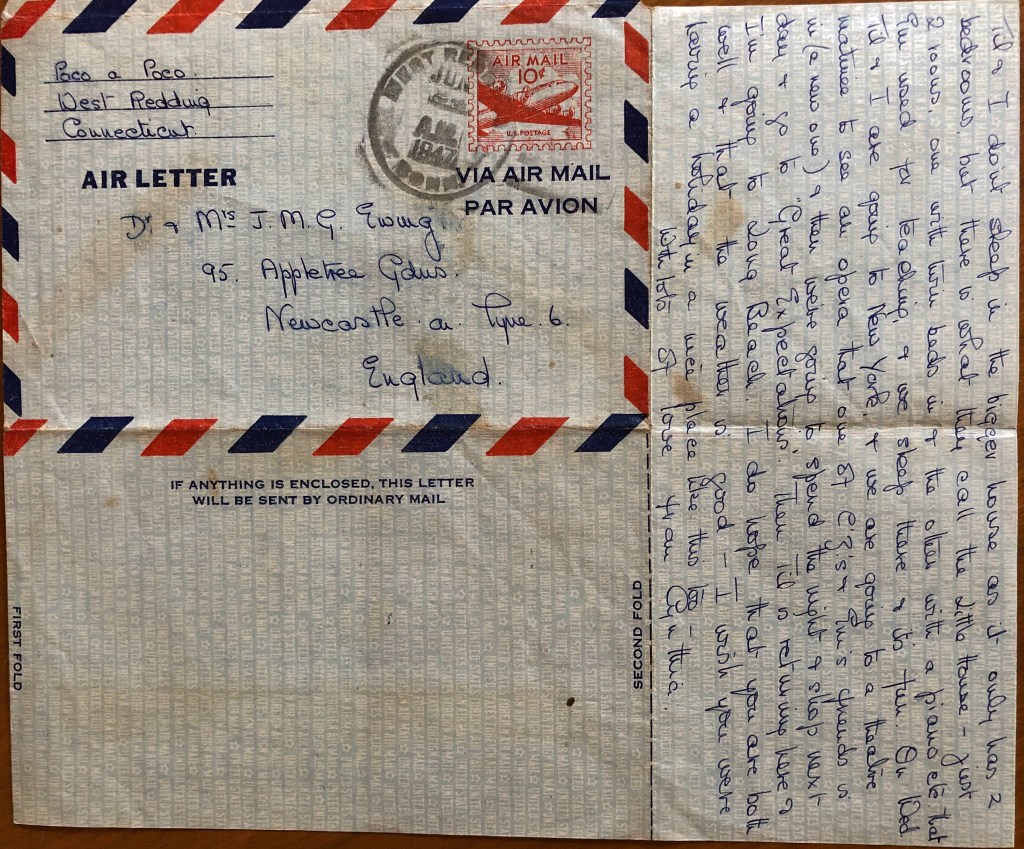 Poco a Poco.
West Redding
Connecticut.
AIR MAIL
10¢
U.S. POSTAGE
WEST REDD
JUN
A.M.
1947
CONN
AIR LETTER
VIA AIR MAIL
PAR AVION
Dr & Mrs J. M. G. Ewing
95. Appletree Gdns.
Newcastle. on. Tyne. 6.
England.
IF ANYTHING IS ENCLOSED, THIS LETTER
WILL BE SENT BY ORDINARY MAIL
FIRST FOLD
SECOND FOLD
Til & I don't sleep in the bigger house as it only has 2
bedrooms, but there is what they call the Little House - just
2 rooms, one with twin beds in & the other with a piano etc that
used for teaching, & we sleep there & its fun. On Wed
Til & I are going to New York, & we are going to a theatre
matinee to see an opera that one of & friends is
in (a new one) & then we're going to spend the night & shop next
day & go to "Great Expectations". Then Til is returning here &
I'm going to Long Beach. I do hope that you are both
well & that the weather is good - I wish you were
having a holiday in a nice place like this too -
With lots of love from Cynthia.